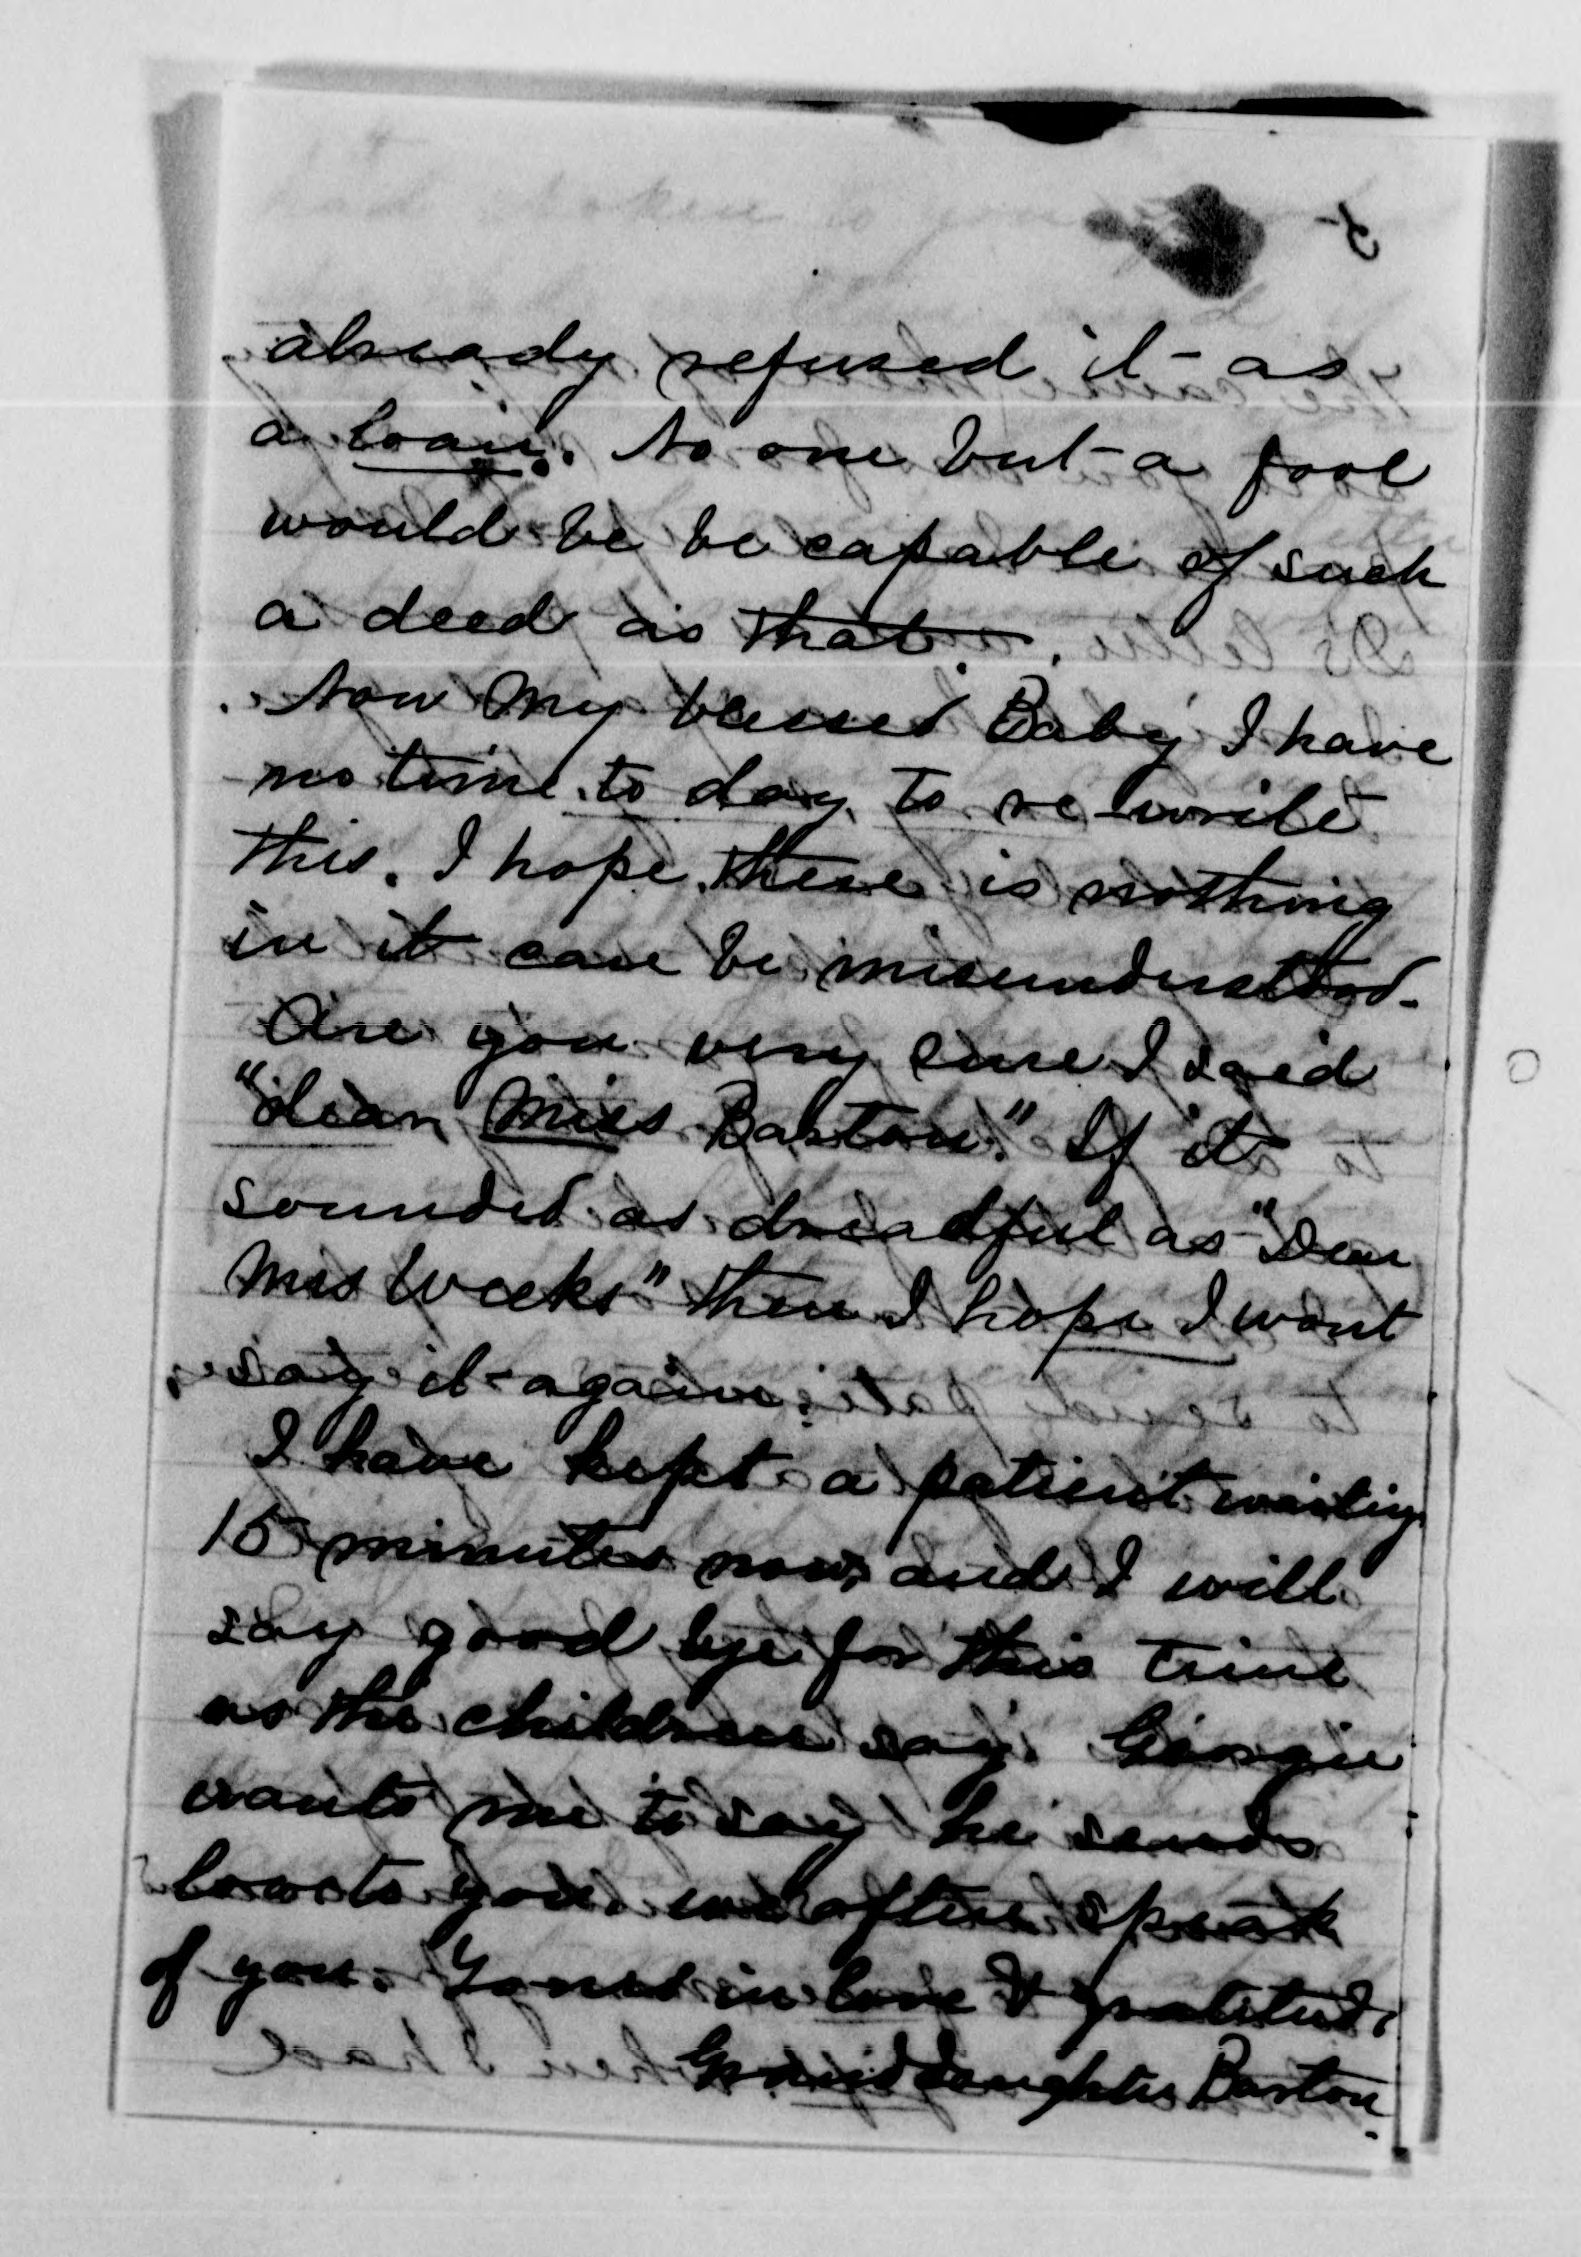 5
already refused it - as
a loan. No one but a fool
would be be capable of such
a deed as that.
Now My blessed Baby I have
no time to day to re-write
this. I hope there is nothing
in it can be misunderstood.
Are you very sure I said
"dear Miss Barton." If it
sounded as dreadful as "Dear
Mrs Weeks" then I hope I wont
say it again.
I have kept a patient waiting
15 minutes now, and I will
say good bye for this time
as the children say. Georgie
wants me to say he sends
love to you. we often speak
of you. Yours in love & gratitud.
Grand daughter Barton.